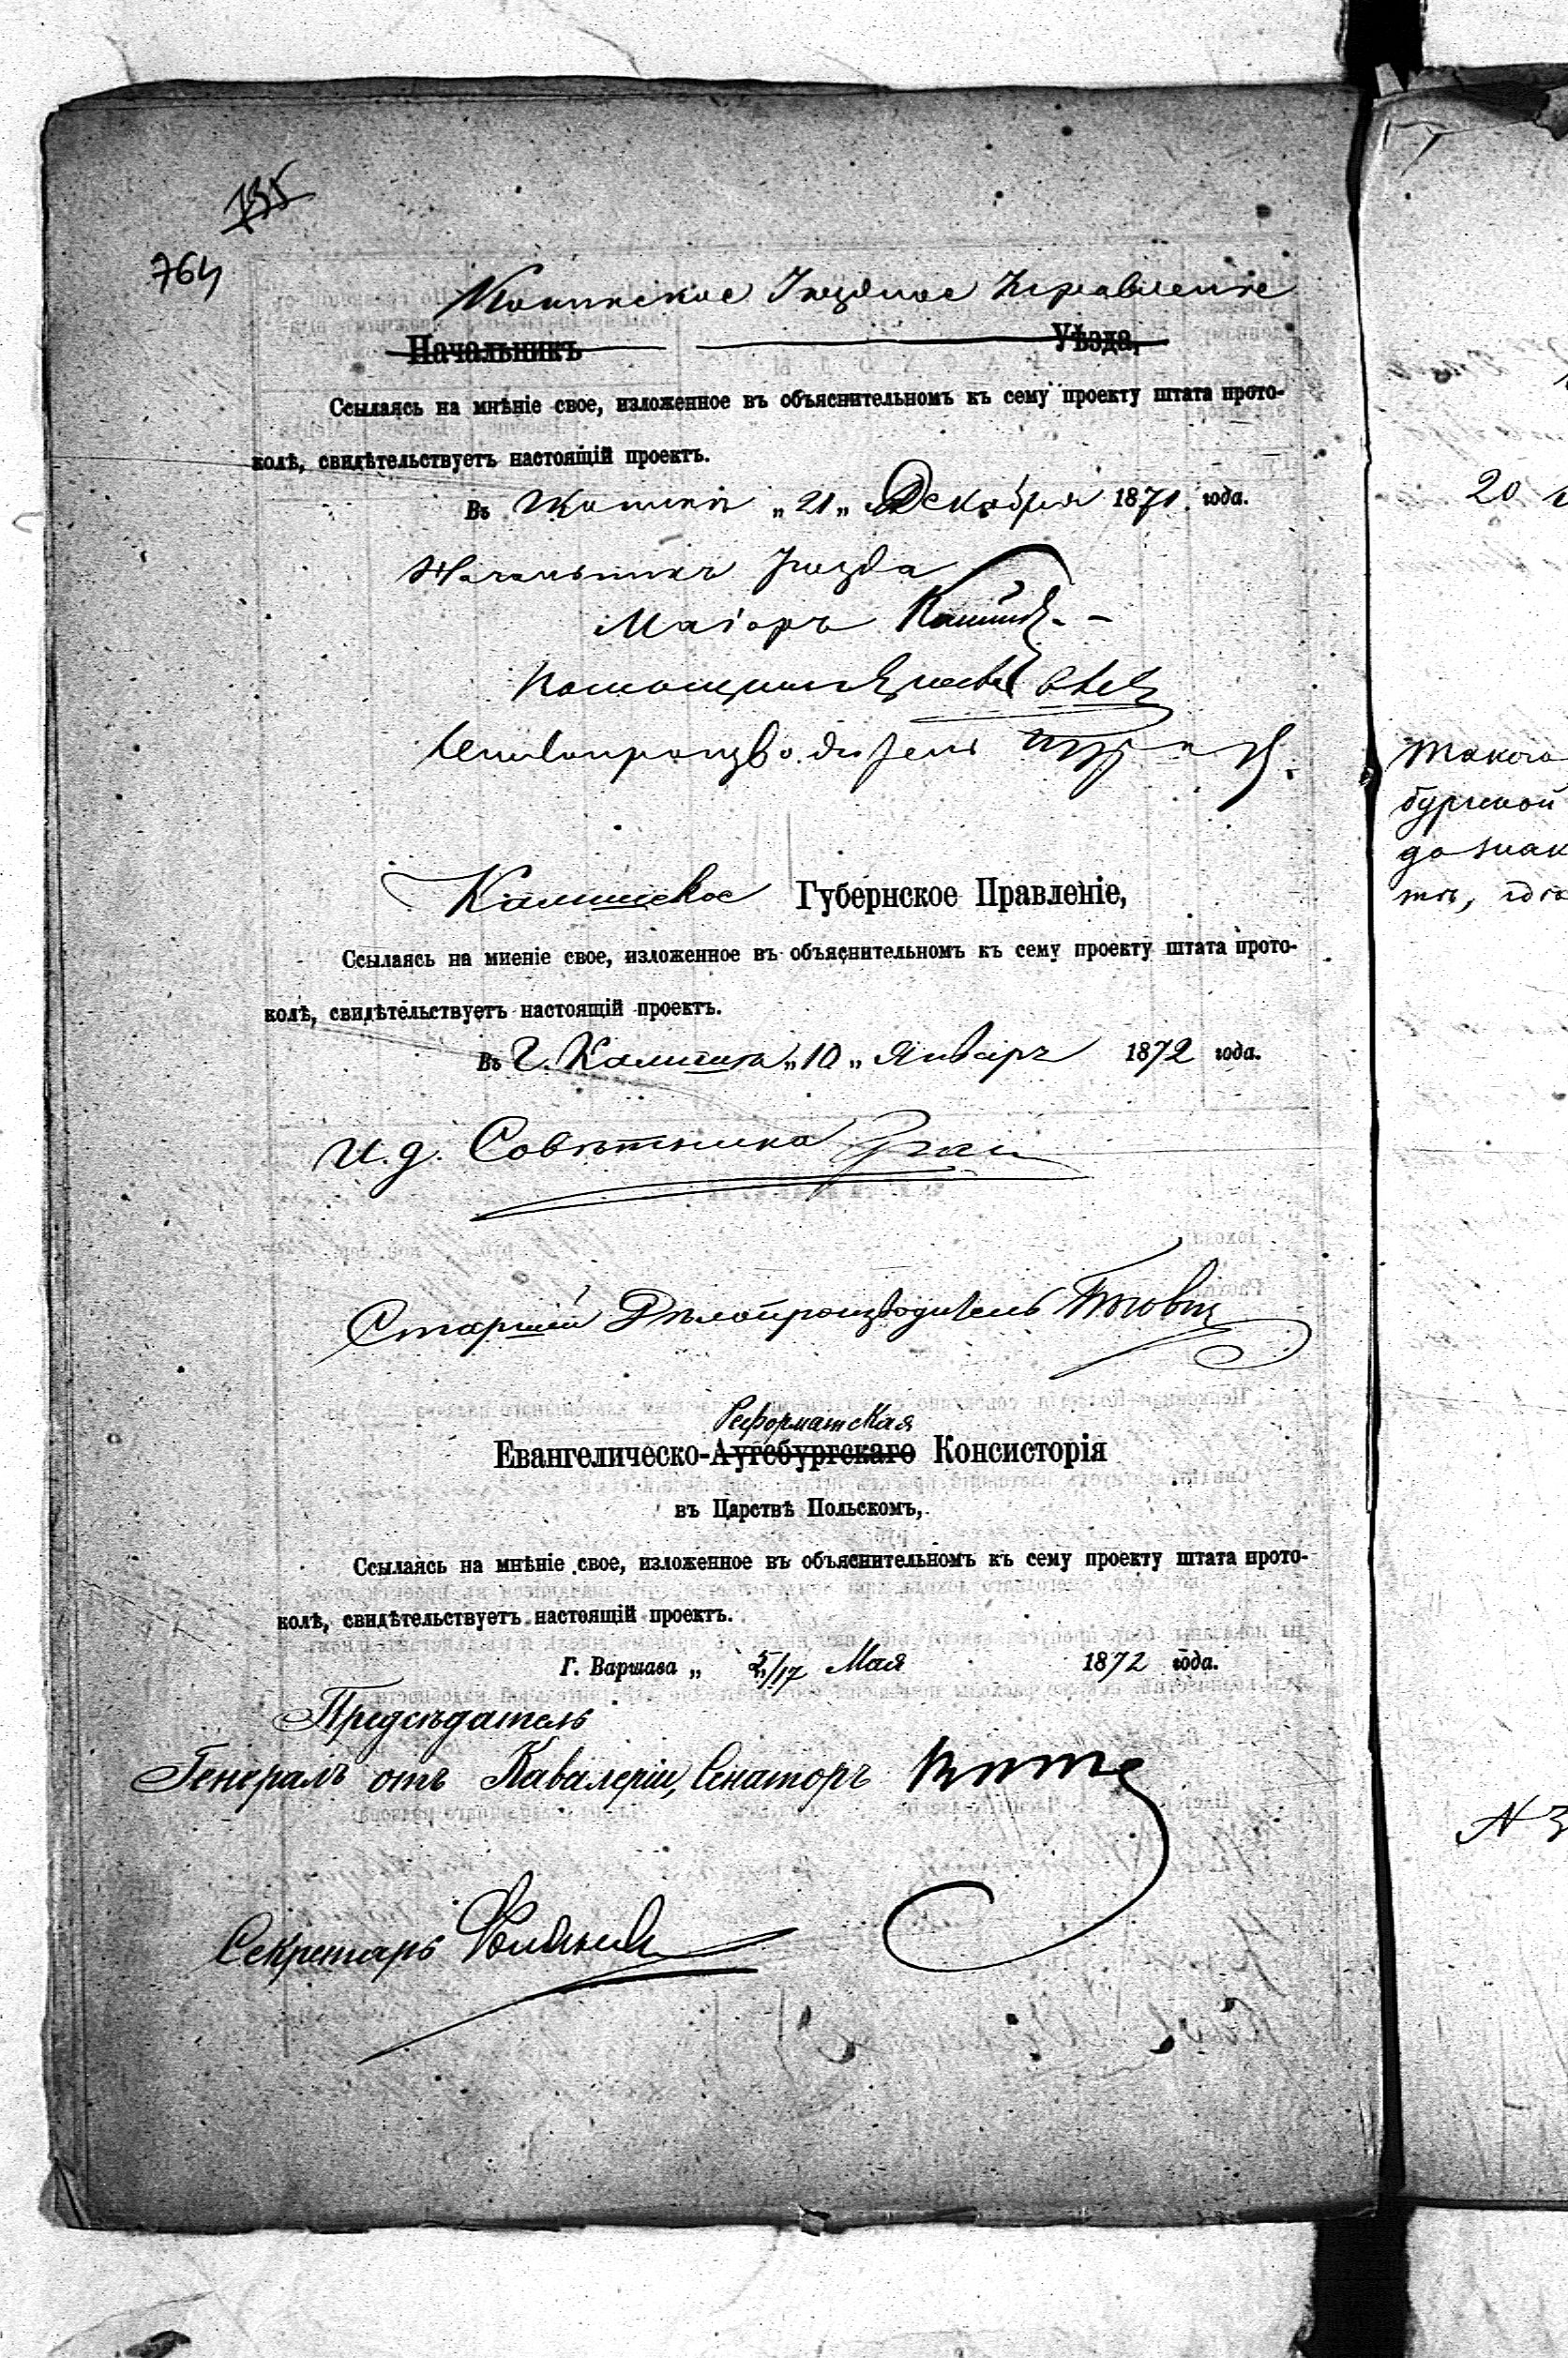 735
764
Конинское Уѣздное Управленіе
Начальникъ Уѣзда,
Ссылаясь на мнѣніе свое, изложенное въ объяснительномъ къ сему проекту штата прото-
колѣ, свидѣтельствуетъ настоящій проектъ.
Въ Конинѣ „21„ Декабря 1871 года.
Начальникъ Уѣзда
Маіоръ
Помощникъ
Дѣлопроизводитель
Калишское Губернское Правленіе,
Ссылаясь на миеніе свое, изложенное въ объяснительномъ къ сему проекту штата прото-
колѣ, свидѣтельствуетъ настоящій проектъ.
Въ г. Калишѣ „10„ Январъ 1872 года.
И. д. Совѣтника
Старшій Дѣлопроизводитель
Реформатская
Евангелическо-Аугсбургскаго Консисторія
въ Царствѣ Польскомъ,
Ссылаясь на мнѣніе свое, изложенное въ объяснительномъ къ сему проекту штата прото-
колѣ, свидѣтельствуетъ настоящій проектъ.
Г. Варшава „ 5/17 Мая 1872 года.
Предсѣдатель
Генералъ отъ Кавалеріи, Сенаторъ Витте
Секретарь
20
такого
бургской